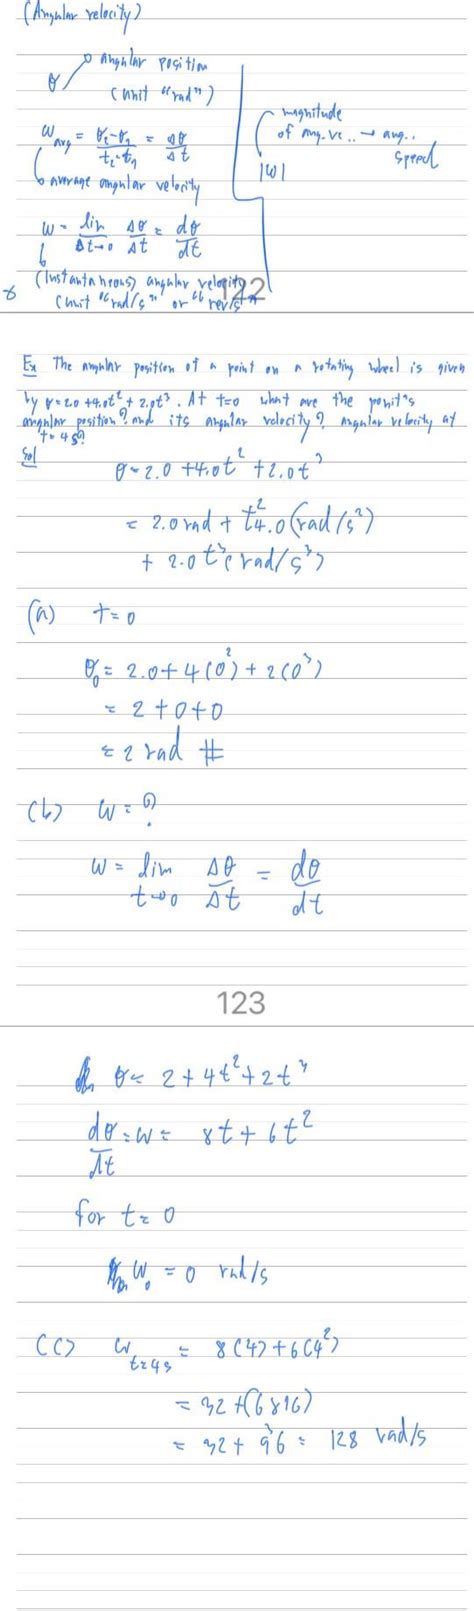 (Angular velocity)
θ angular position
(unit "rad")
magnitude
of ang.ve.. → ang..
speed
|ω|
ω avg = θ₂-θ₁/t₂-t₁ = Δθ/Δt
average angular velocity
ω = lim Δt→0 Δθ/Δt = dθ/dt
(Instantaneous) angular velocity
(unit "rad/s" or "rev/s"
122
Ex The angular position of a point on a rotating wheel is given
by θ=2.0+4.0t²+2.0t³. At t=0 what are the point's
angular position? and its angular velocity? angular velocity at
t=4s?
Sol
θ = 2.0 + 4.0t² + 2.0t³
= 2.0 rad + t²4.0(rad/s²)
+ 2.0t³(rad/s³)
(a) t=0
θ₀ = 2.0+4(0²)+2(0³)
= 2+0+0
= 2 rad #
(b) ω = ?
ω = lim t→0 Δθ/Δt = dθ/dt
123
θ = 2+4t²+2t³
dθ/dt = ω = 8t+6t²
for t=0
ω₀ = 0 rad/s
(c) ω t=4s = 8(4)+6(4²)
= 32+(6×16)
= 32 + 96 = 128 rad/s